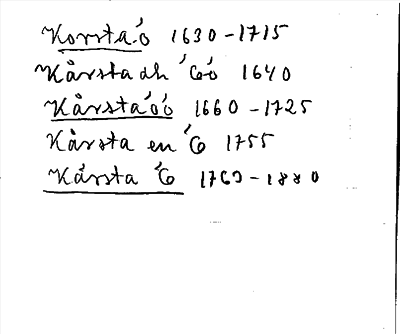 Korsta ó 1630-1715
Kårstadh óó 1640
Kårsta óó 1660-1725
Kårsta en ó 1755
Kårsta ó 1760-1880